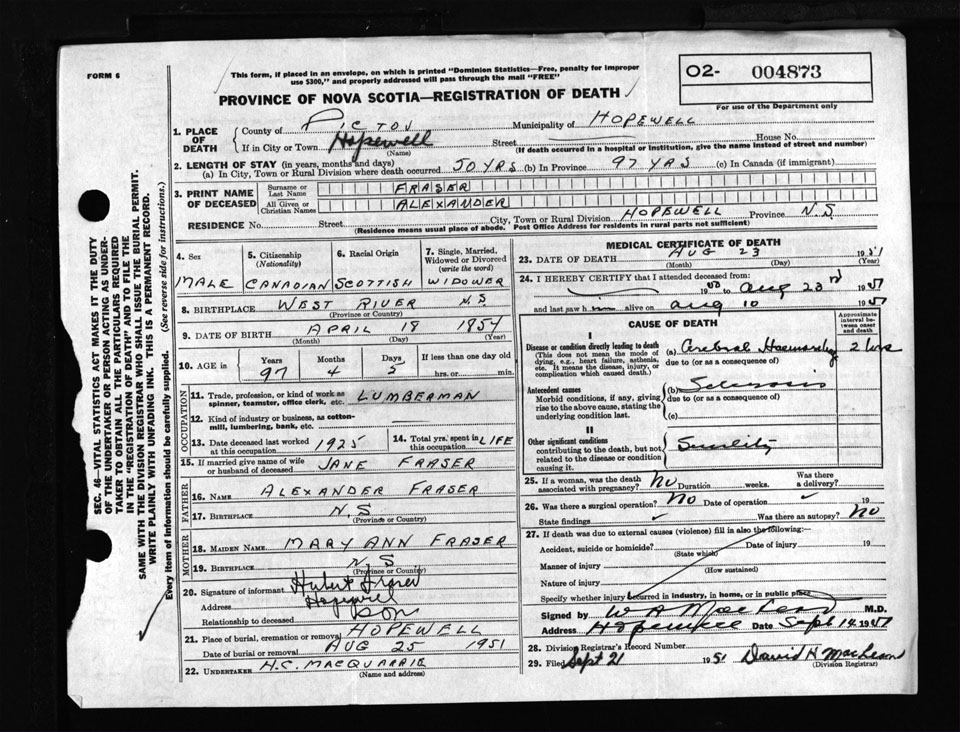 FORM 6
This form, if placed in an envelope, on which is printed "Dominion Statistics—Free, penalty for improper
use $300," and properly addressed will pass through the mail "FREE"
O2- 004873
PROVINCE OF NOVA SCOTIA—REGISTRATION OF DEATH
For use of the Department only
1. PLACE OF DEATH
County of PICTOU Municipality of HOPEWELL
If in City or Town Hopewell Street House No.
(Name) (If death occurred in a hospital or institution, give the name instead of street and number)
2. LENGTH OF STAY (in years, months and days)
(a) In City, Town or Rural Division where death occurred 50 YRS (b) In Province 97 YRS (c) In Canada (if immigrant)
3. PRINT NAME OF DECEASED
Surname or Last Name FRASER
All Given or Christian Names ALEXANDER
RESIDENCE No. Street City, Town or Rural Division HOPEWELL Province N.S.
(Residence means usual place of abode. Post Office Address for residents in rural parts not sufficient)
4. Sex
MALE
5. Citizenship (Nationality)
CANADIAN
6. Racial Origin
SCOTTISH
7. Single, Married, Widowed or Divorced (write the word)
WIDOWER
8. BIRTHPLACE WEST RIVER N.S
(Province or Country)
9. DATE OF BIRTH APRIL 18 1854
(Month) (Day) (Year)
10. AGE in
Years Months Days If less than one day old
97 4 5 hrs. or min.
OCCUPATION
11. Trade, profession, or kind of work as spinner, teamster, office clerk, etc. LUMBERMAN
12. Kind of industry or business, as cotton-mill, lumbering, bank, etc.
13. Date deceased last worked at this occupation 1925
14. Total yrs. spent in this occupation LIFE
15. If married give name of wife or husband of deceased JANE FRASER
FATHER
16. NAME ALEXANDER FRASER
17. BIRTHPLACE N.S
(Province or Country)
MOTHER
18. MAIDEN NAME MARY ANN FRASER
19. BIRTHPLACE N.S
(Province or Country)
20. Signature of informant Hubert Fraser
Address Hopewell
Relationship to deceased son
21. Place of burial, cremation or removal HOPEWELL
Date of burial or removal AUG 25 1951
22. UNDERTAKER H.C. MACQUARRIE
(Name and address)
MEDICAL CERTIFICATE OF DEATH
23. DATE OF DEATH AUG 23 1951
(Month) (Day) (Year)
24. I HEREBY CERTIFY that I attended deceased from
19 to Aug 23 1951
and last saw h im alive on Aug 10 1951
CAUSE OF DEATH
Approximate interval between onset and death
I
Disease or condition directly leading to death
(This does not mean the mode of dying, e.g., heart failure, asthenia, etc. It means the disease, injury, or complication which caused death.)
(a) Cerebral Haemorrhage
due to (or as a consequence of)
Antecedent causes
Morbid conditions, if any, giving rise to the above cause, stating the underlying condition last.
(b) Sclerosis
due to (or as a consequence of)
(c)
II
Other significant conditions
contributing to the death, but not related to the disease or condition causing it.
Senility
25. If a woman, was the death associated with pregnancy? No Duration weeks. Was there a delivery?
26. Was there a surgical operation? No Date of operation 19
State findings Was there an autopsy? No
27. If death was due to external causes (violence) fill in also the following:—
Accident, suicide or homicide? Date of injury 19
(State which)
Manner of injury
(How sustained)
Nature of injury
Specify whether injury occurred in industry, in home, or in public place
Signed by W A MacLeod M.D.
Address Hopewell Date Sept 14 1951
28. Division Registrar's Record Number
29. Filed Sept 21 1951 David H MacLean
(Division Registrar)
SEC. 46—VITAL STATISTICS ACT MAKES IT THE DUTY
OF THE UNDERTAKER OR PERSON ACTING AS UNDER-
TAKER TO OBTAIN ALL THE PARTICULARS REQUIRED
IN THE "REGISTRATION OF DEATH" AND TO FILE THE
SAME WITH THE DIVISION REGISTRAR WHO SHALL ISSUE THE BURIAL PERMIT.
WRITE PLAINLY WITH UNFADING INK. THIS IS A PERMANENT RECORD.
Every item of information should be carefully supplied. (See reverse side for instructions.)